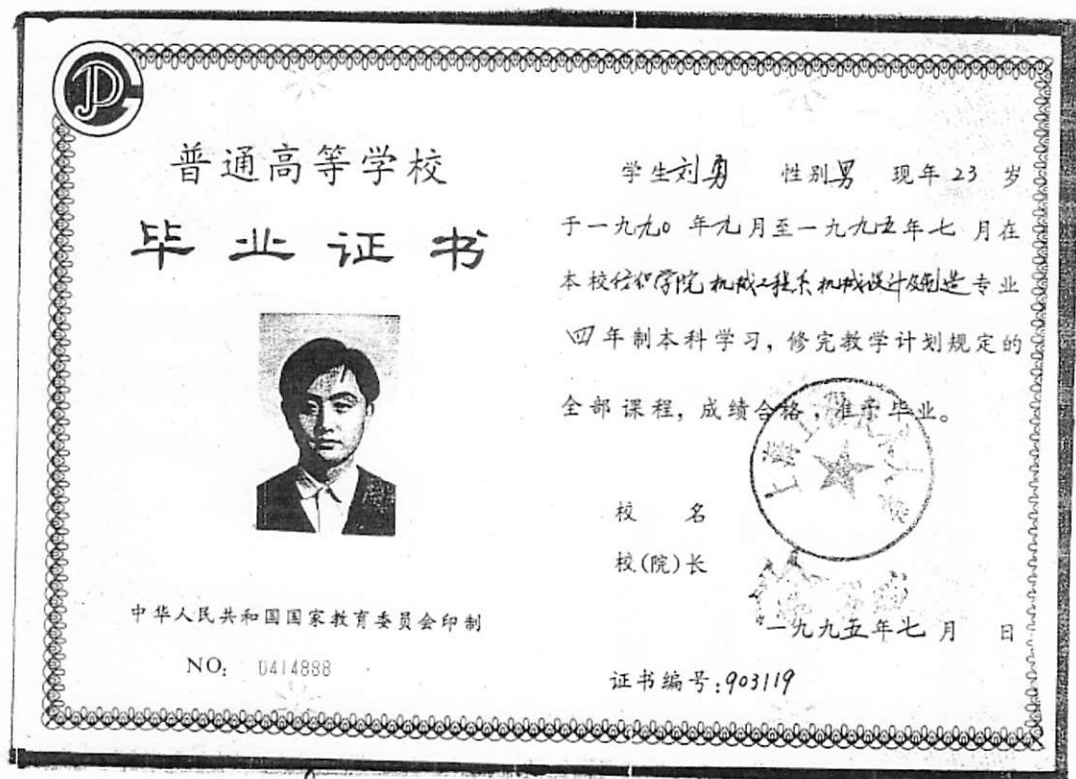 普通高等学校
毕业证书
中华人民共和国国家教育委员会印制
NO: 0414888
学生刘勇 性别男 现年23岁
于一九九0年九月至一九九五年七月在
本校纺织学院机械工程系机械设计及制造专业
四年制本科学习，修完教学计划规定的
全部课程，成绩合格，准予毕业。
校 名
上海工程技术大学
校(院)长
一九九五年七月 日
证书编号:903119